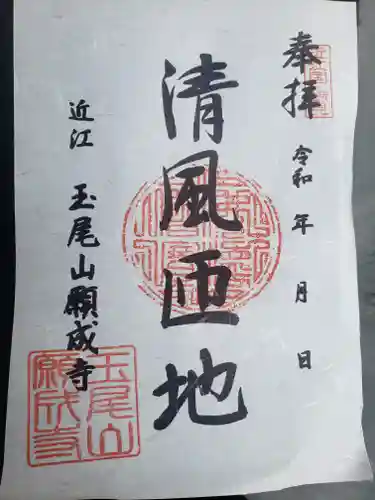 奉拝
令和 年 月 日
清風匝地
近江 玉尾山願成寺
玉尾山
願成寺